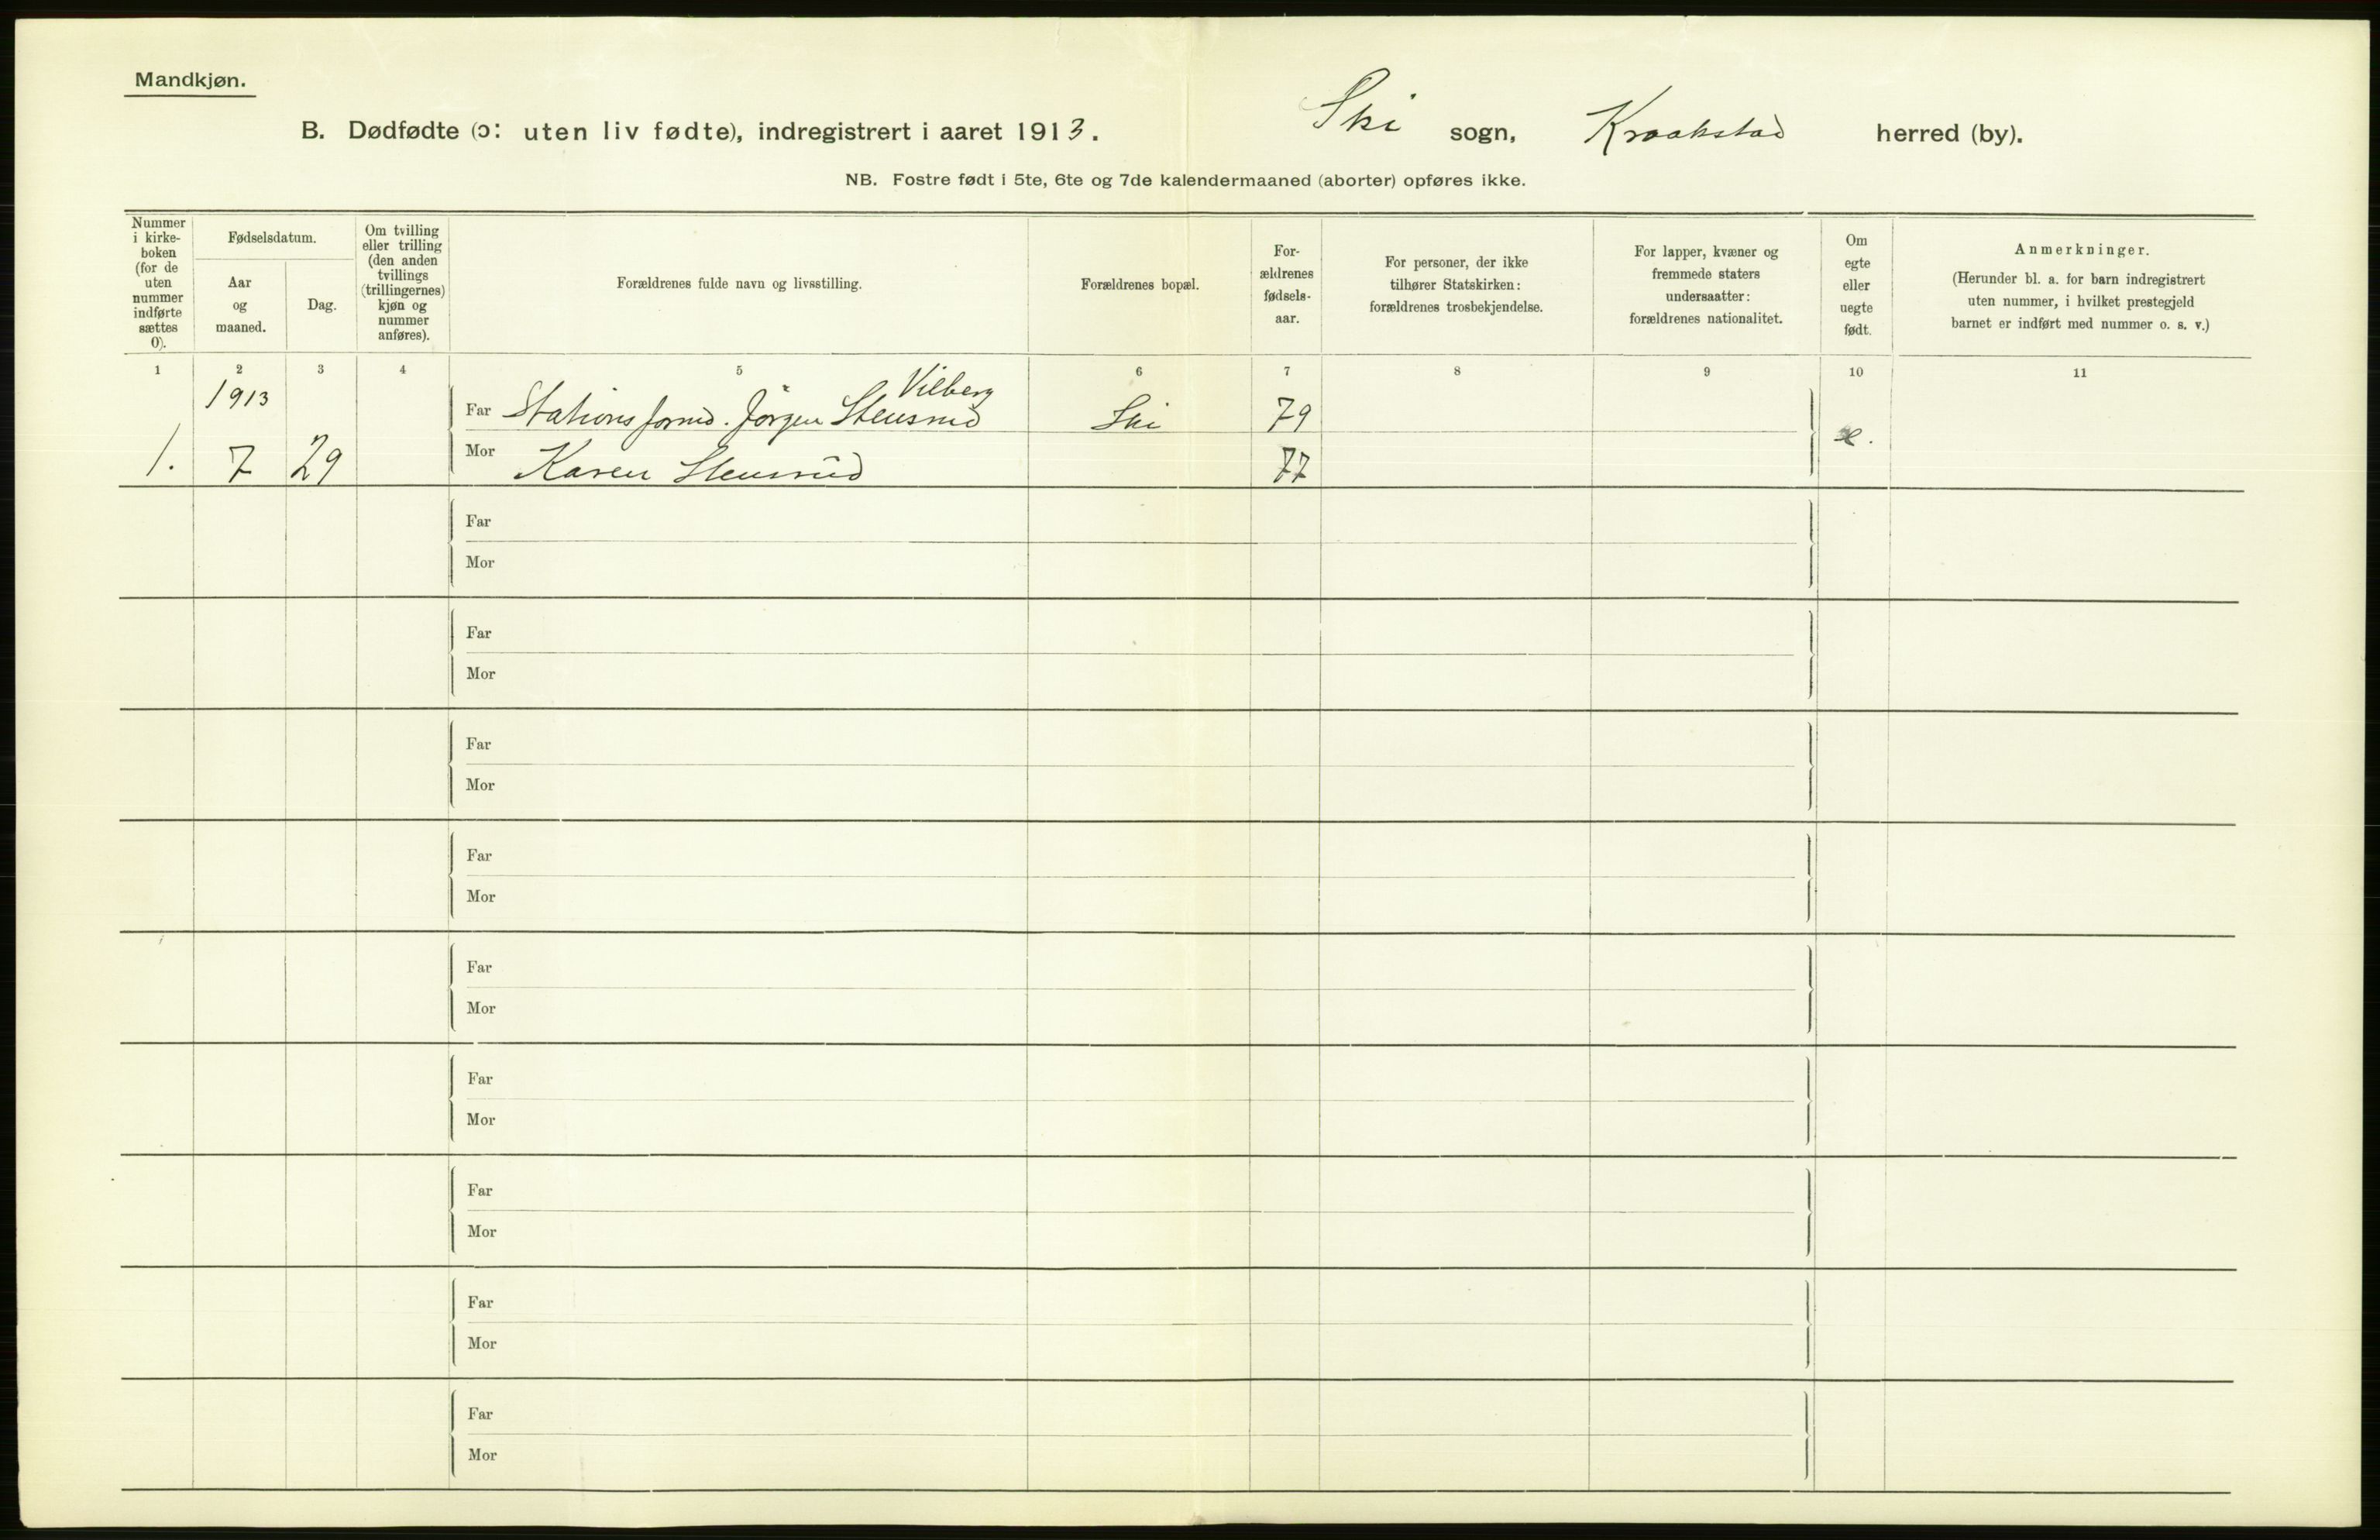 Mandkjøn.
B. Dødfødte (ɔ: uten liv fødte), indregistrert i aaret 1913. Ski sogn, Kraakstad herred (by).
NB. Fostre født i 5te, 6te og 7de kalendermaaned (aborter) opføres ikke.
Nummer
i kirke-
boken
(for de
uten
nummer
indførte
sættes
0).
Fødselsdatum.
Aar
og
maaned.
Dag.
Om tvilling
eller trilling
(den anden
tvillings
(trillingernes)
kjøn og
nummer
anføres).
Forældrenes fulde navn og livsstilling.
Forældrenes bopæl.
For-
ældrenes
fødsels-
aar.
For personer, der ikke
tilhører Statskirken:
forældrenes trosbekjendelse.
For lapper, kvæner og
fremmede staters
undersaatter:
forældrenes nationalitet.
Om
egte
eller
uegte
født.
Anmerkninger.
(Herunder bl. a. for barn indregistrert
uten nummer, i hvilket prestegjeld
barnet er indført med nummer o. s. v.)
1 2 3 4 5 6 7 8 9 10 11
1913 Vilberg
Far Stationsformd. Jørgen Stensrud Ski 79
e.
1. 7 29 Mor Karen Stensrud 77
Far
Mor
Far
Mor
Far
Mor
Far
Mor
Far
Mor
Far
Mor
Far
Mor
Far
Mor
Far
Mor